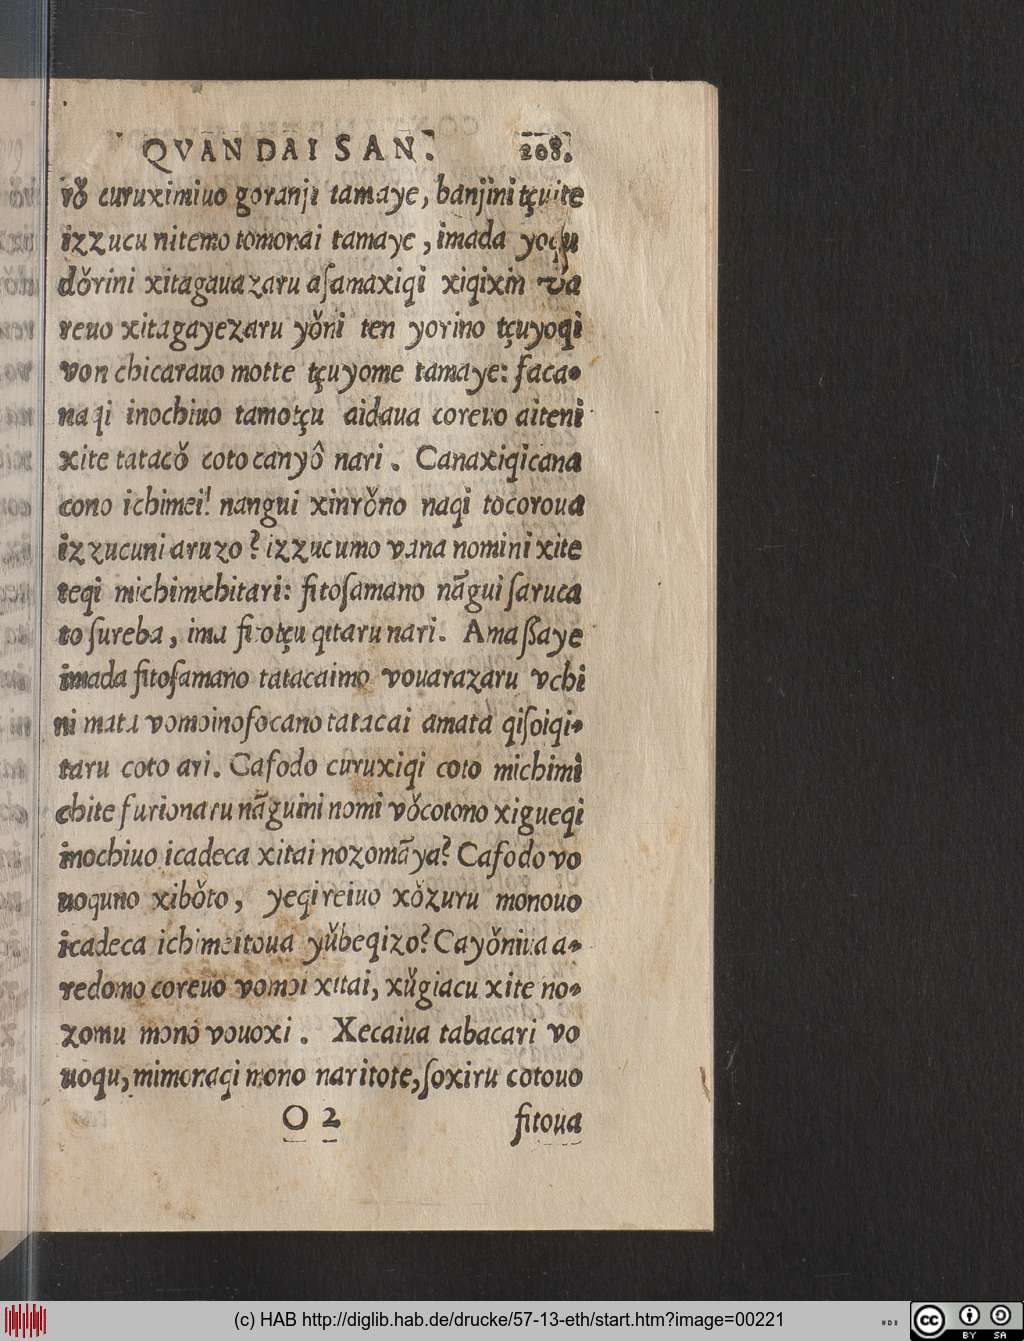 QVAN DAI SAN. 208.
rŏ curuximiuo goranji tamaye, banjini tçuite
izzucu nitemo tomorai tamaye, imada yocu
dŏrini xitagauazaru aſamaxiqi xiqixin va
reuo xitagayezaru yŏni ten yorino tçuyoqi
von chicarauo motte tçuyome tamaye: ſaca-
naqi inochiuo tamotçu aidaua coreuo aiteni
xite tatacŏ coto canyô nari. Canaxiqicana
cono ichimei! nangui xinrŏno naqi tocoroua
izzucuni aruzo? izzucumo vana nomini xite
teqi michimichitari: fitoſamano nãgui ſaruca
to ſureba, ima fitotçu qitaru nari. Amaſſaye
imada fitoſamano tatacaimo vouarazaru vchi
ni mata vomoinofocano tatacai amata qiſoiqi-
taru coto ari. Cafodo curuxiqi coto michimi
chite furionaru nãguini nomi vŏcotono xigueqi
inochiuo icadeca xitai nozomãya? Cafodo vo
uoquno xibŏto, yeqireiuo xŏzuru monouo
icadeca ichimeitoua yŭbeqizo? Cayŏniua a-
redomo coreuo vomoi xitai, xŭgiacu xite no-
zomu mono vouoxi. Xecaiua tabacari vo
uoqu, mimonaqi mono naritote, ſoxiru cotouo
O 2 fitoua
(c) HAB http://diglib.hab.de/drucke/57-13-eth/start.htm?image=00221
cc BY SA